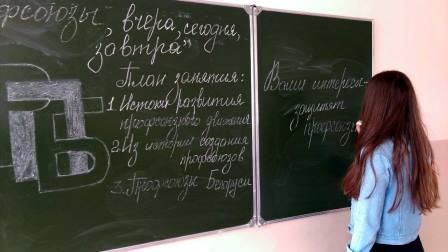 фсоюзы, вчера, сегодня,
завтра"
План занятия:
1. Истоки развития
профсоюзного движения
2. Из истории создания
профсоюзов
3. Профсоюзы Беларуси
Ваши интересы -
защитят
профсоюз